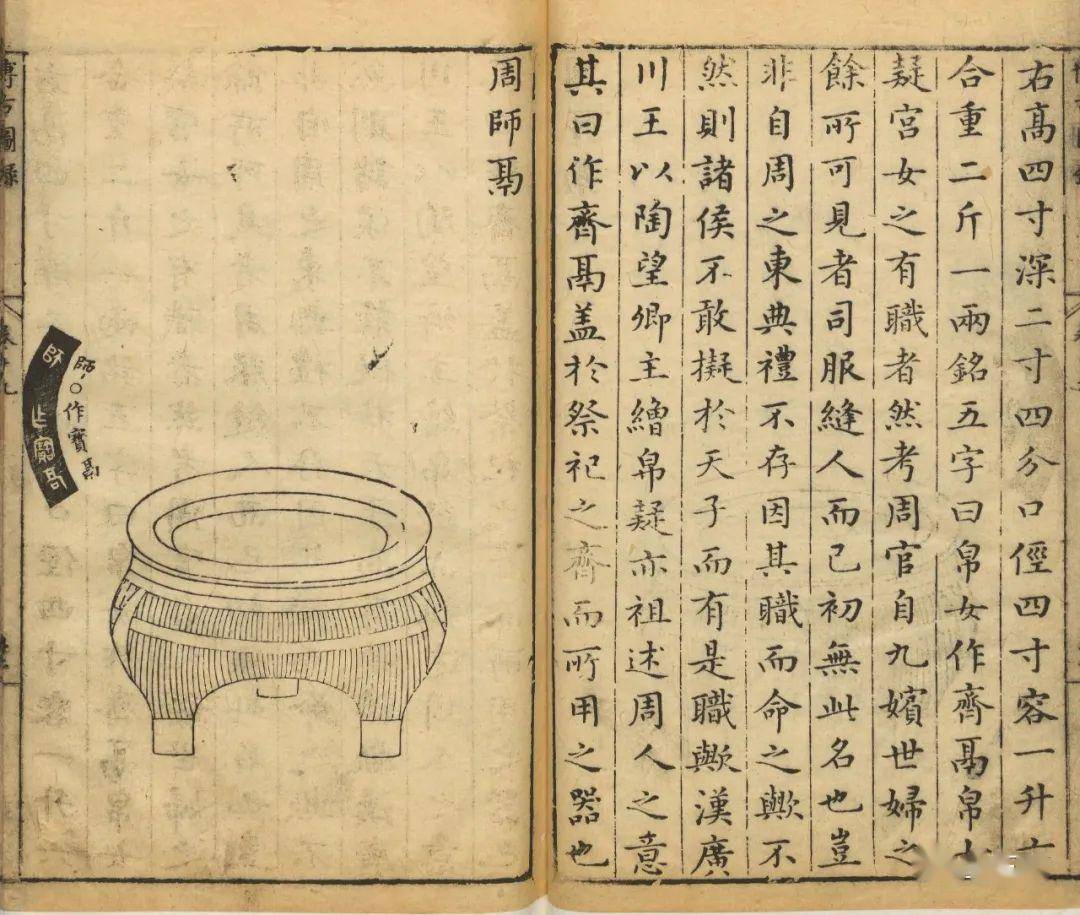 右高四寸深二寸四分口徑四寸容一升
合重二斤一兩銘五字曰帛女作齊鬲帛
疑宮女之有職者然考周官自九嬪世婦之
餘所可見者司服縫人而已初無此名也豈
非自周之東典禮不存因其職而命之歟不
然則諸侯不敢擬於天子而有是職歟漢廣
川王以陶望卿主繒帛疑亦祖述周人之意
其曰作齊鬲盖於祭祀之齊而所用之器也
周師鬲
師○作寶鬲
博古圖錄